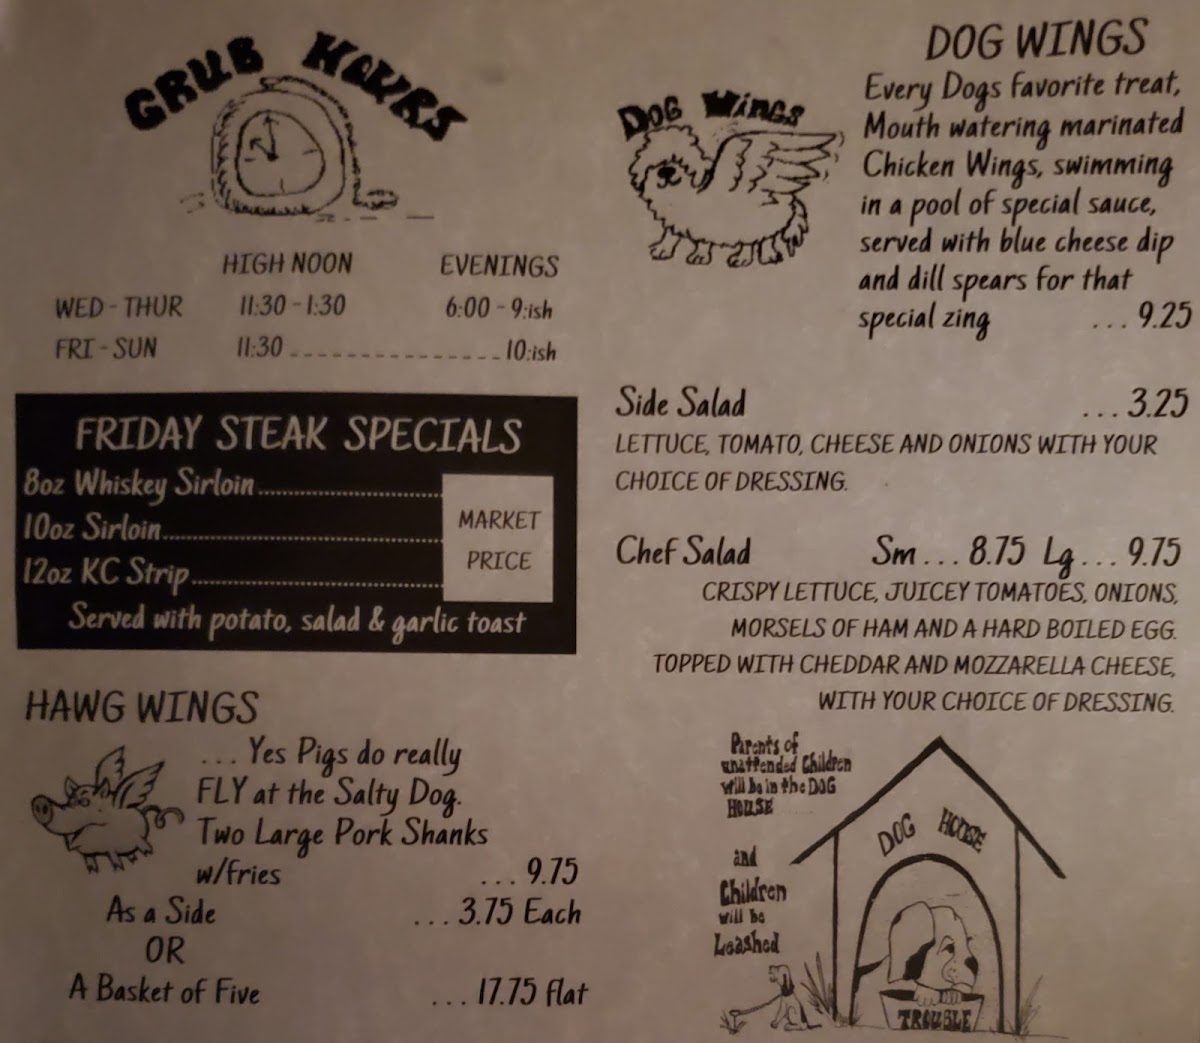 GRUB HOURS
HIGH NOON EVENINGS
WED - THUR 11:30 - 1:30 6:00 - 9:ish
FRI - SUN 11:30 _ _ _ _ _ _ _ _ _ _ _ _ _ _ _ 10:ish
FRIDAY STEAK SPECIALS
8oz Whiskey Sirloin
10oz Sirloin
12oz KC Strip
MARKET
PRICE
Served with potato, salad & garlic toast
HAWG WINGS
... Yes Pigs do really
FLY at the Salty Dog.
Two Large Pork Shanks
w/fries ... 9.75
As a Side ... 3.75 Each
OR
A Basket of Five ... 17.75 flat
DOG WINGS
Dog Wings
Every Dogs favorite treat,
Mouth watering marinated
Chicken Wings, swimming
in a pool of special sauce,
served with blue cheese dip
and dill spears for that
special zing ... 9.25
Side Salad ... 3.25
LETTUCE, TOMATO, CHEESE AND ONIONS WITH YOUR
CHOICE OF DRESSING.
Chef Salad Sm ... 8.75 Lg ... 9.75
CRISPY LETTUCE, JUICEY TOMATOES, ONIONS,
MORSELS OF HAM AND A HARD BOILED EGG.
TOPPED WITH CHEDDAR AND MOZZARELLA CHEESE,
WITH YOUR CHOICE OF DRESSING.
Parents of
unattended Children
will be in the DOG
HOUSE
and
Children
will be
Leashed
DOG HOUSE
TROUBLE